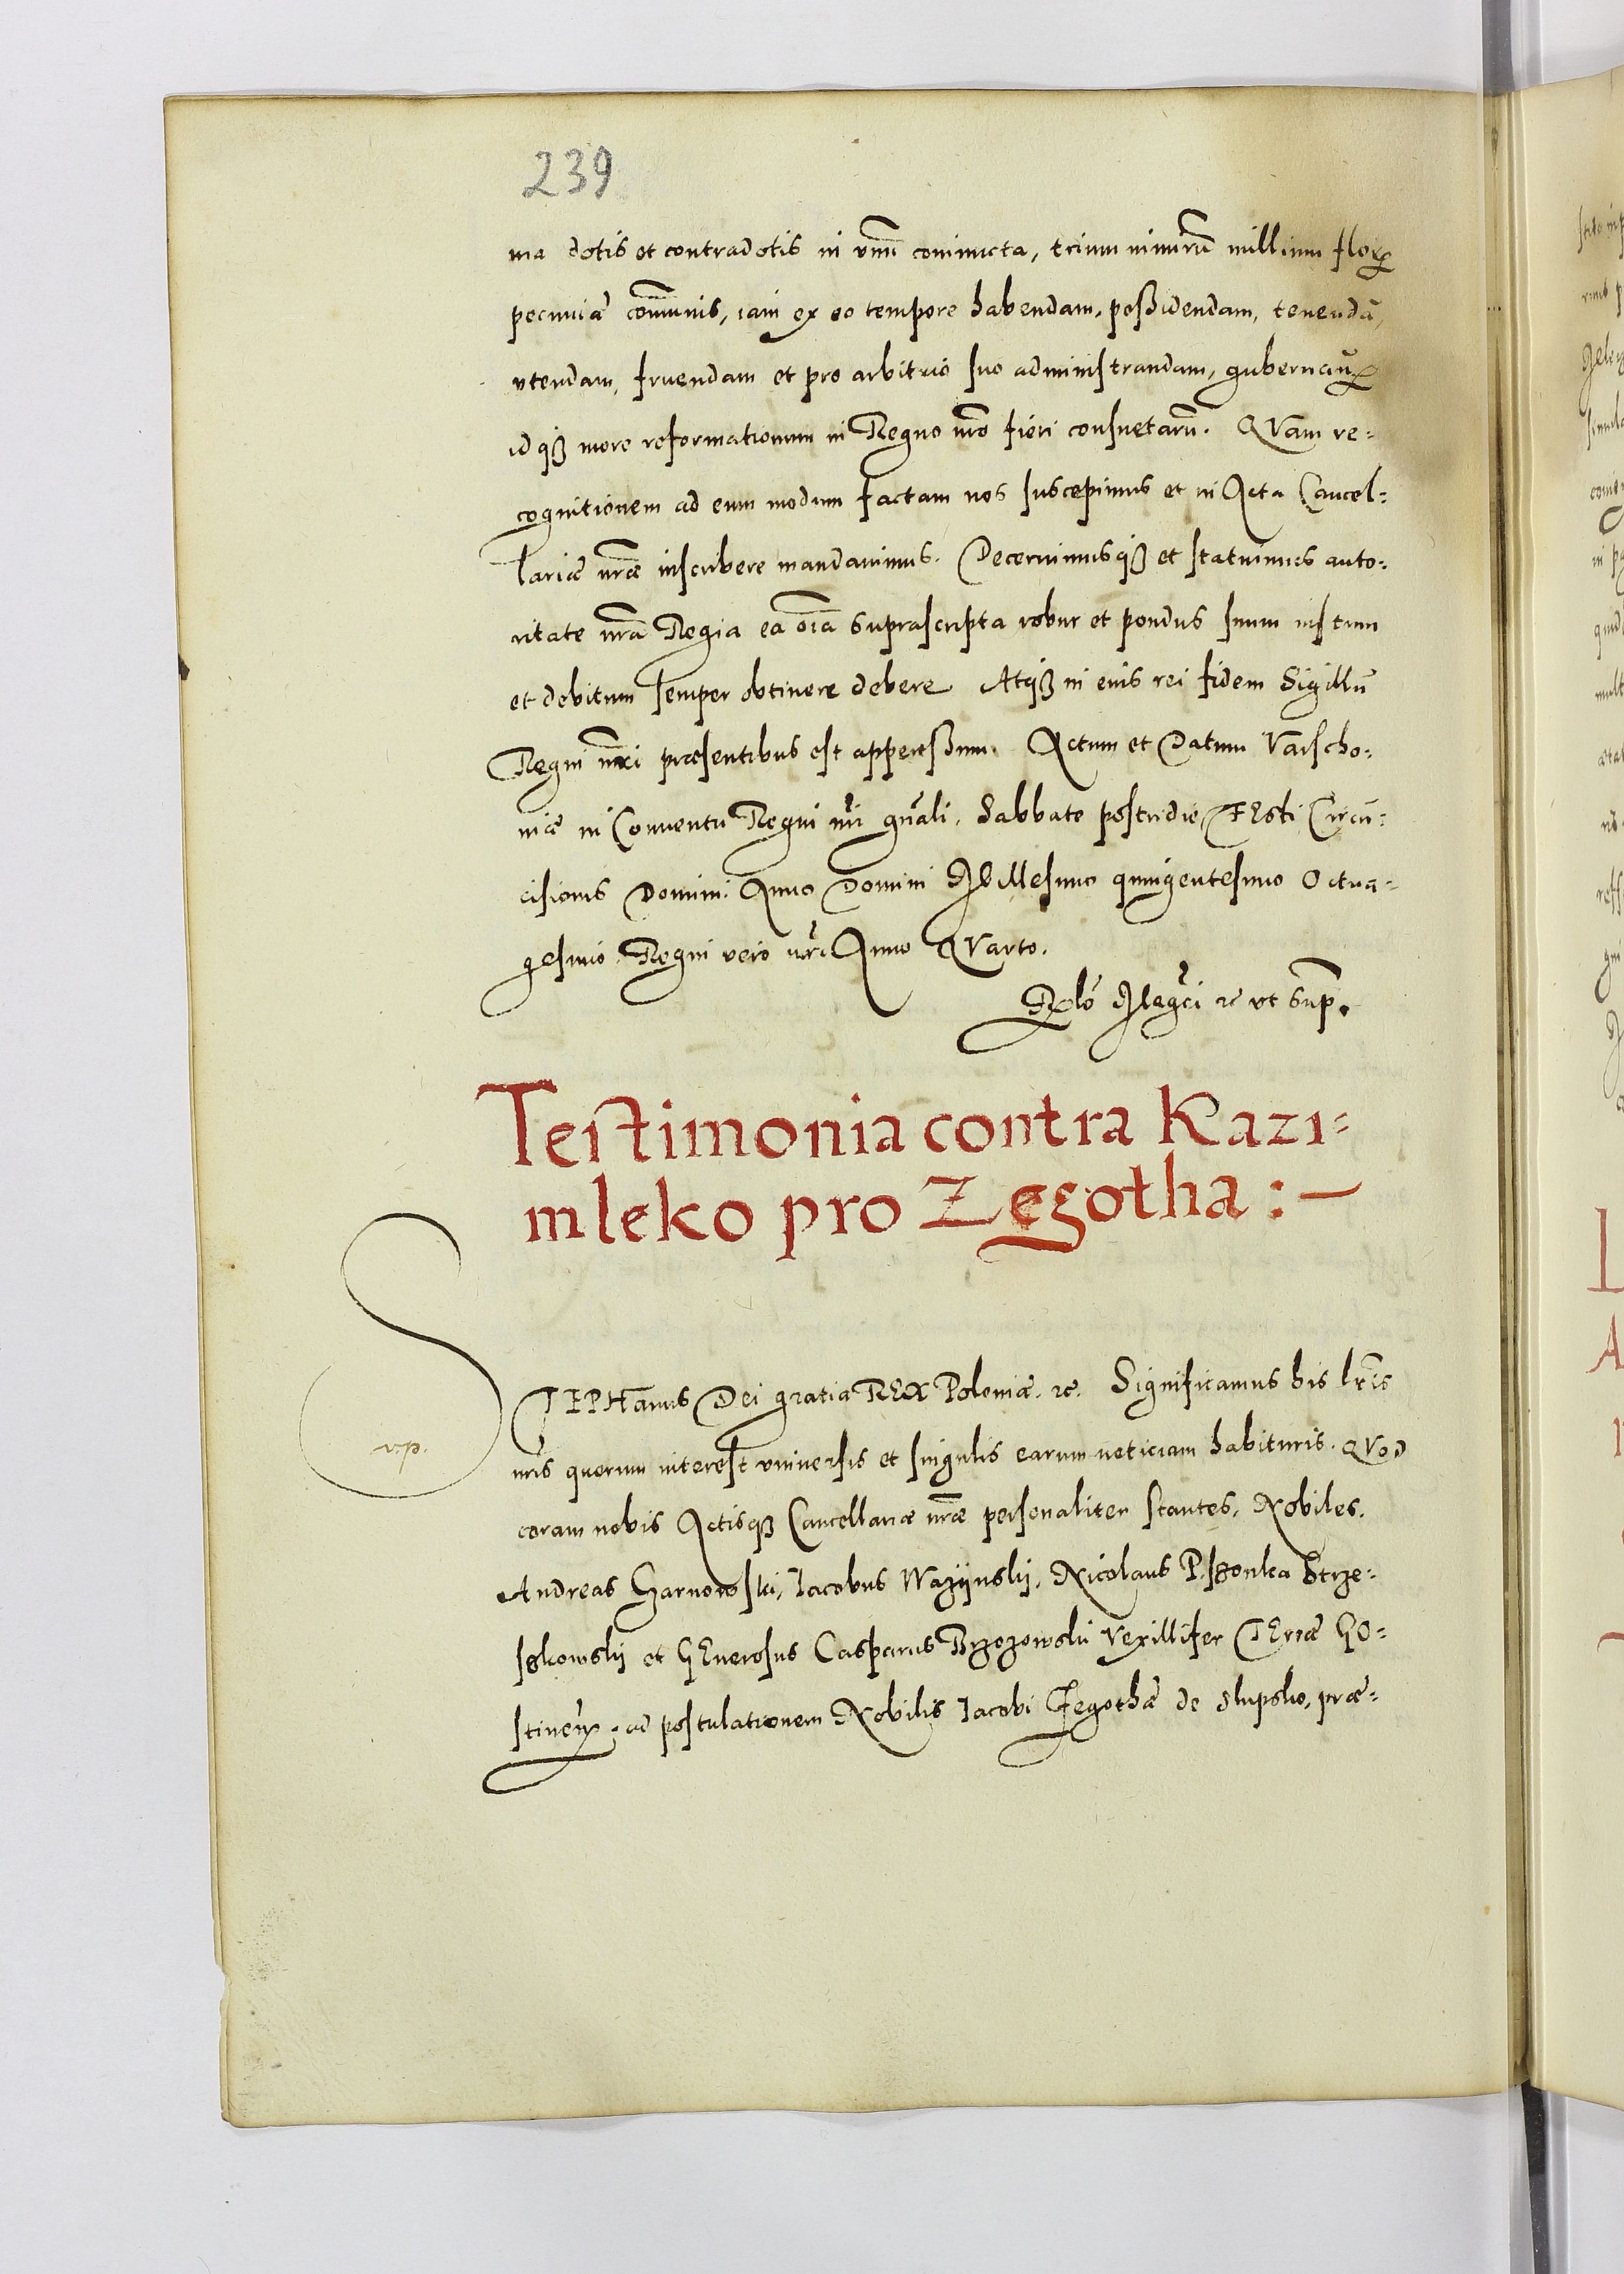 239
ma dotis et contradotis in vnũ coniuncta, trium nimirũ millium flor̃
pecuniæ com̃unis, iam ex eo tempore habendam, poßidendam, tenendã,
vtendam, fruendam et pro arbitrio suo administrandam, gubernañ
idq́ȝ more reformationum in Regno nr̃o fieri consuetarũ. QVam re=
cognitionem ad eum modum factam nos suscepimus et in Acta Cancel=
lariæ nr̃æ inscribere mandauimus. Decernimusq́ȝ et statuimus auto=
ritate nr̃a Regia ea oĩa suprascripta robur et pondus suum iustum
et debitum semper obtinere debere Atq́ȝ in eius rei fidem Sigillũ
Regni nr̃i præsentibus est appensum. Actum et Datum Varscho=
uiæ in Conuentu Regni nr̃i gñali, Sabbato postridie FEsti Circũ=
cisionis Domini. Anno Domini MIllesimo quingentesimo Octua=
gesimo Regni vero nr̃i Anno QVarto.
Relõ Magci ꝛc vt supr̃.
Testimonia contra Kazi=
mleko pro Zegotha :—
STEPHanus Dei gratia REX Poloniæ. ꝛc. Significamus his lr̃is
v.p.
nr̃is quorum interest vniuersis et singulis earum noticiam habituris. QVod
coram nobis Actisq́ȝ Cancellariæ nr̃æ personaliter stantes, Nobiles,
Andreas Garnowski, Iacobus Wazÿnskÿ, Nicolaus Pszonka Strze=
szkowskÿ et GEnerosus Casparus Brzozowski Vexillifer TErræ GO=
stineñ, ad postulationem Nobilis Iacobi Zegothæ de Slupsko, præ=